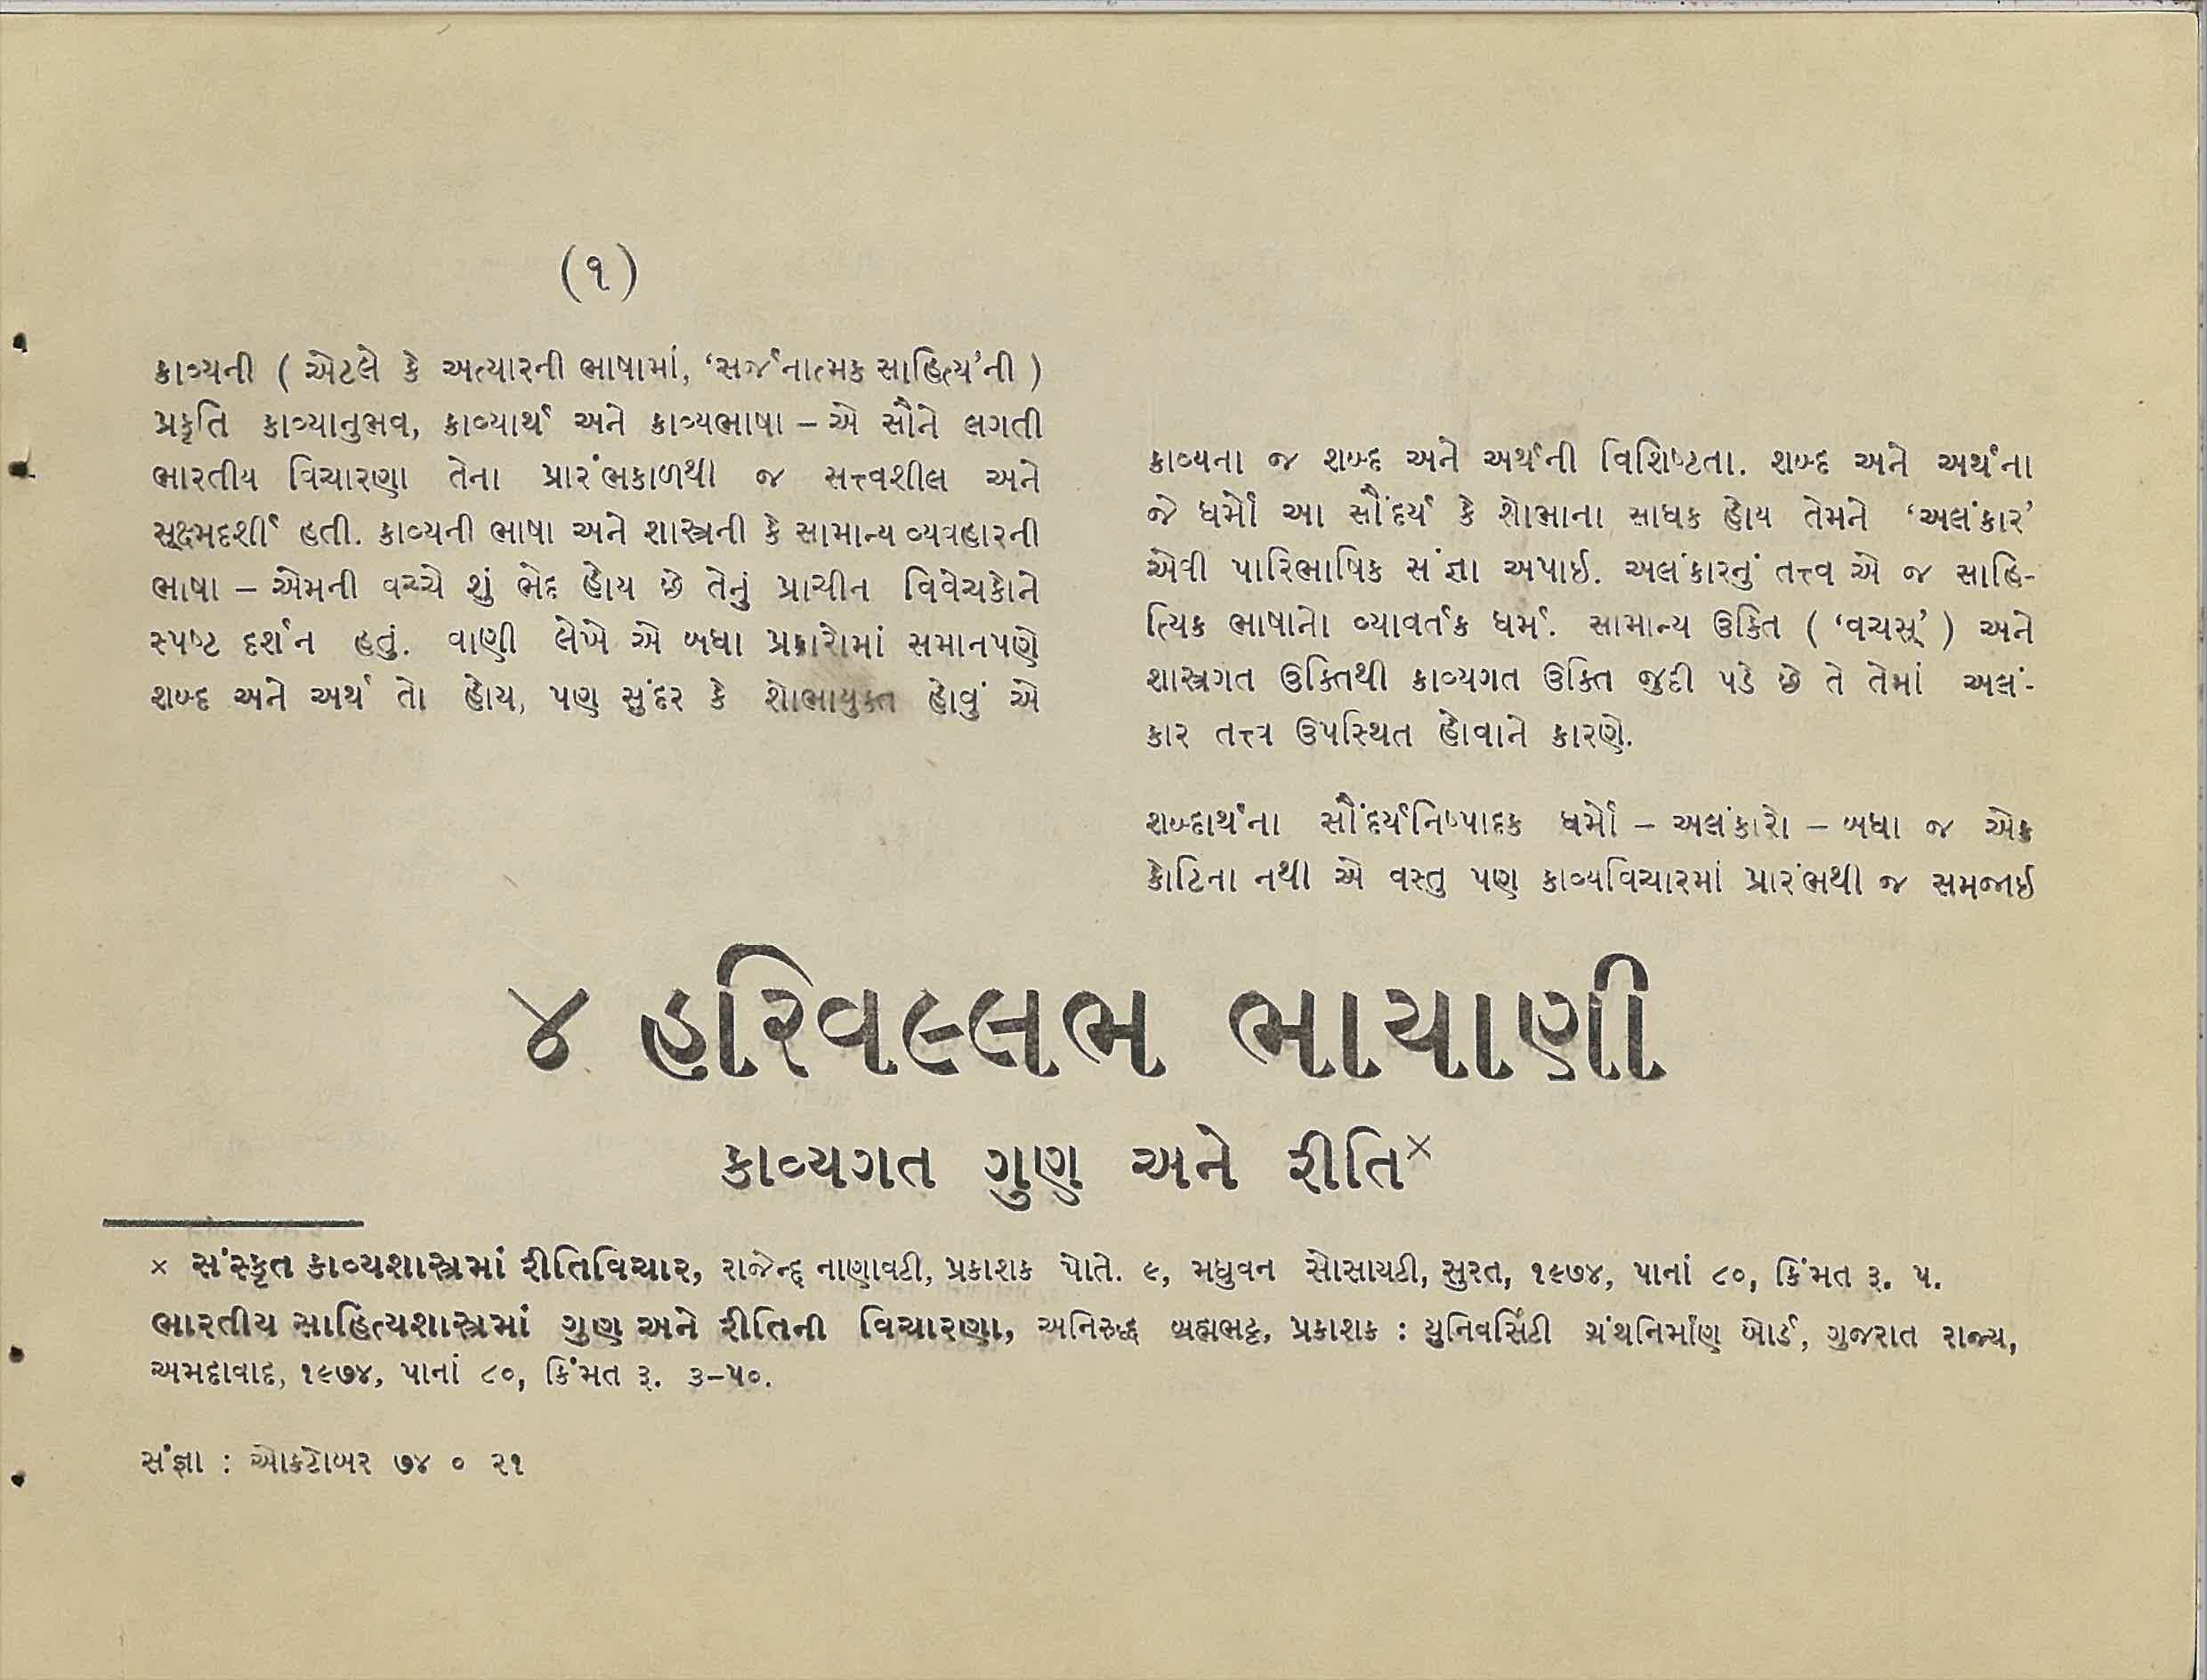 (૧)
કાવ્યની ( એટલે કે અત્યારની ભાષામાં, ‘સર્જનાત્મક સાહિત્ય’ની )
પ્રકૃતિ કાવ્યાનુભવ, કાવ્યાર્થ અને કાવ્યભાષા – એ સૌને લગતી
ભારતીય વિચારણા તેના પ્રારંભકાળથી જ સત્ત્વશીલ અને
સૂક્ષ્મદર્શી હતી. કાવ્યની ભાષા અને શાસ્ત્રની કે સામાન્ય વ્યવહારની
ભાષા – એમની વચ્ચે શું ભેદ હોય છે તેનું પ્રાચીન વિવેચકોને
સ્પષ્ટ દર્શન હતું. વાણી લેખે એ બધા પ્રકારોમાં સમાનપણે
શબ્દ અને અર્થ તો હોય, પણ સુંદર કે શોભાયુક્ત હોવું એ
કાવ્યના જ શબ્દ અને અર્થની વિશિષ્ટતા. શબ્દ અને અર્થના
જે ધર્મો આ સૌંદર્ય કે શોભાના સાધક હોય તેમને ‘અલંકાર’
એવી પારિભાષિક સંજ્ઞા અપાઈ. અલંકારનું તત્ત્વ એ જ સાહિ-
ત્યિક ભાષાનો વ્યાવર્તક ધર્મ. સામાન્ય ઉક્તિ ( ‘વચસ્’ ) અને
શાસ્ત્રગત ઉક્તિથી કાવ્યગત ઉક્તિ જુદી પડે છે તે તેમાં અલં-
કાર તત્ત્વ ઉપસ્થિત હોવાને કારણે.
શબ્દાર્થના સૌંદર્યનિષ્પાદક ધર્મો – અલંકારો – બધા જ એક
કોટિના નથી એ વસ્તુ પણ કાવ્યવિચારમાં પ્રારંભથી જ સમજાઈ
૪ હરિવલ્લભ ભાયાણી
કાવ્યગત ગુણ અને રીતિ×
× સંસ્કૃત કાવ્યશાસ્ત્રમાં રીતિવિચાર, રાજેન્દ્ર નાણાવટી, પ્રકાશક પોતે. ૯, મધુવન સોસાયટી, સુરત, ૧૯૭૪, પાનાં ૮૦, કિંમત રૂ. ૫.
ભારતીય સાહિત્યશાસ્ત્રમાં ગુણ અને રીતિની વિચારણા, અનિરુદ્ધ બ્રહ્મભટ્ટ, પ્રકાશક : યુનિવર્સિટી ગ્રંથનિર્માણ બોર્ડ, ગુજરાત રાજ્ય,
અમદાવાદ, ૧૯૭૪, પાનાં ૮૦, કિંમત રૂ. ૩–૫૦.
સંજ્ઞા : ઓક્ટોબર ૭૪ ૦ ૨૧